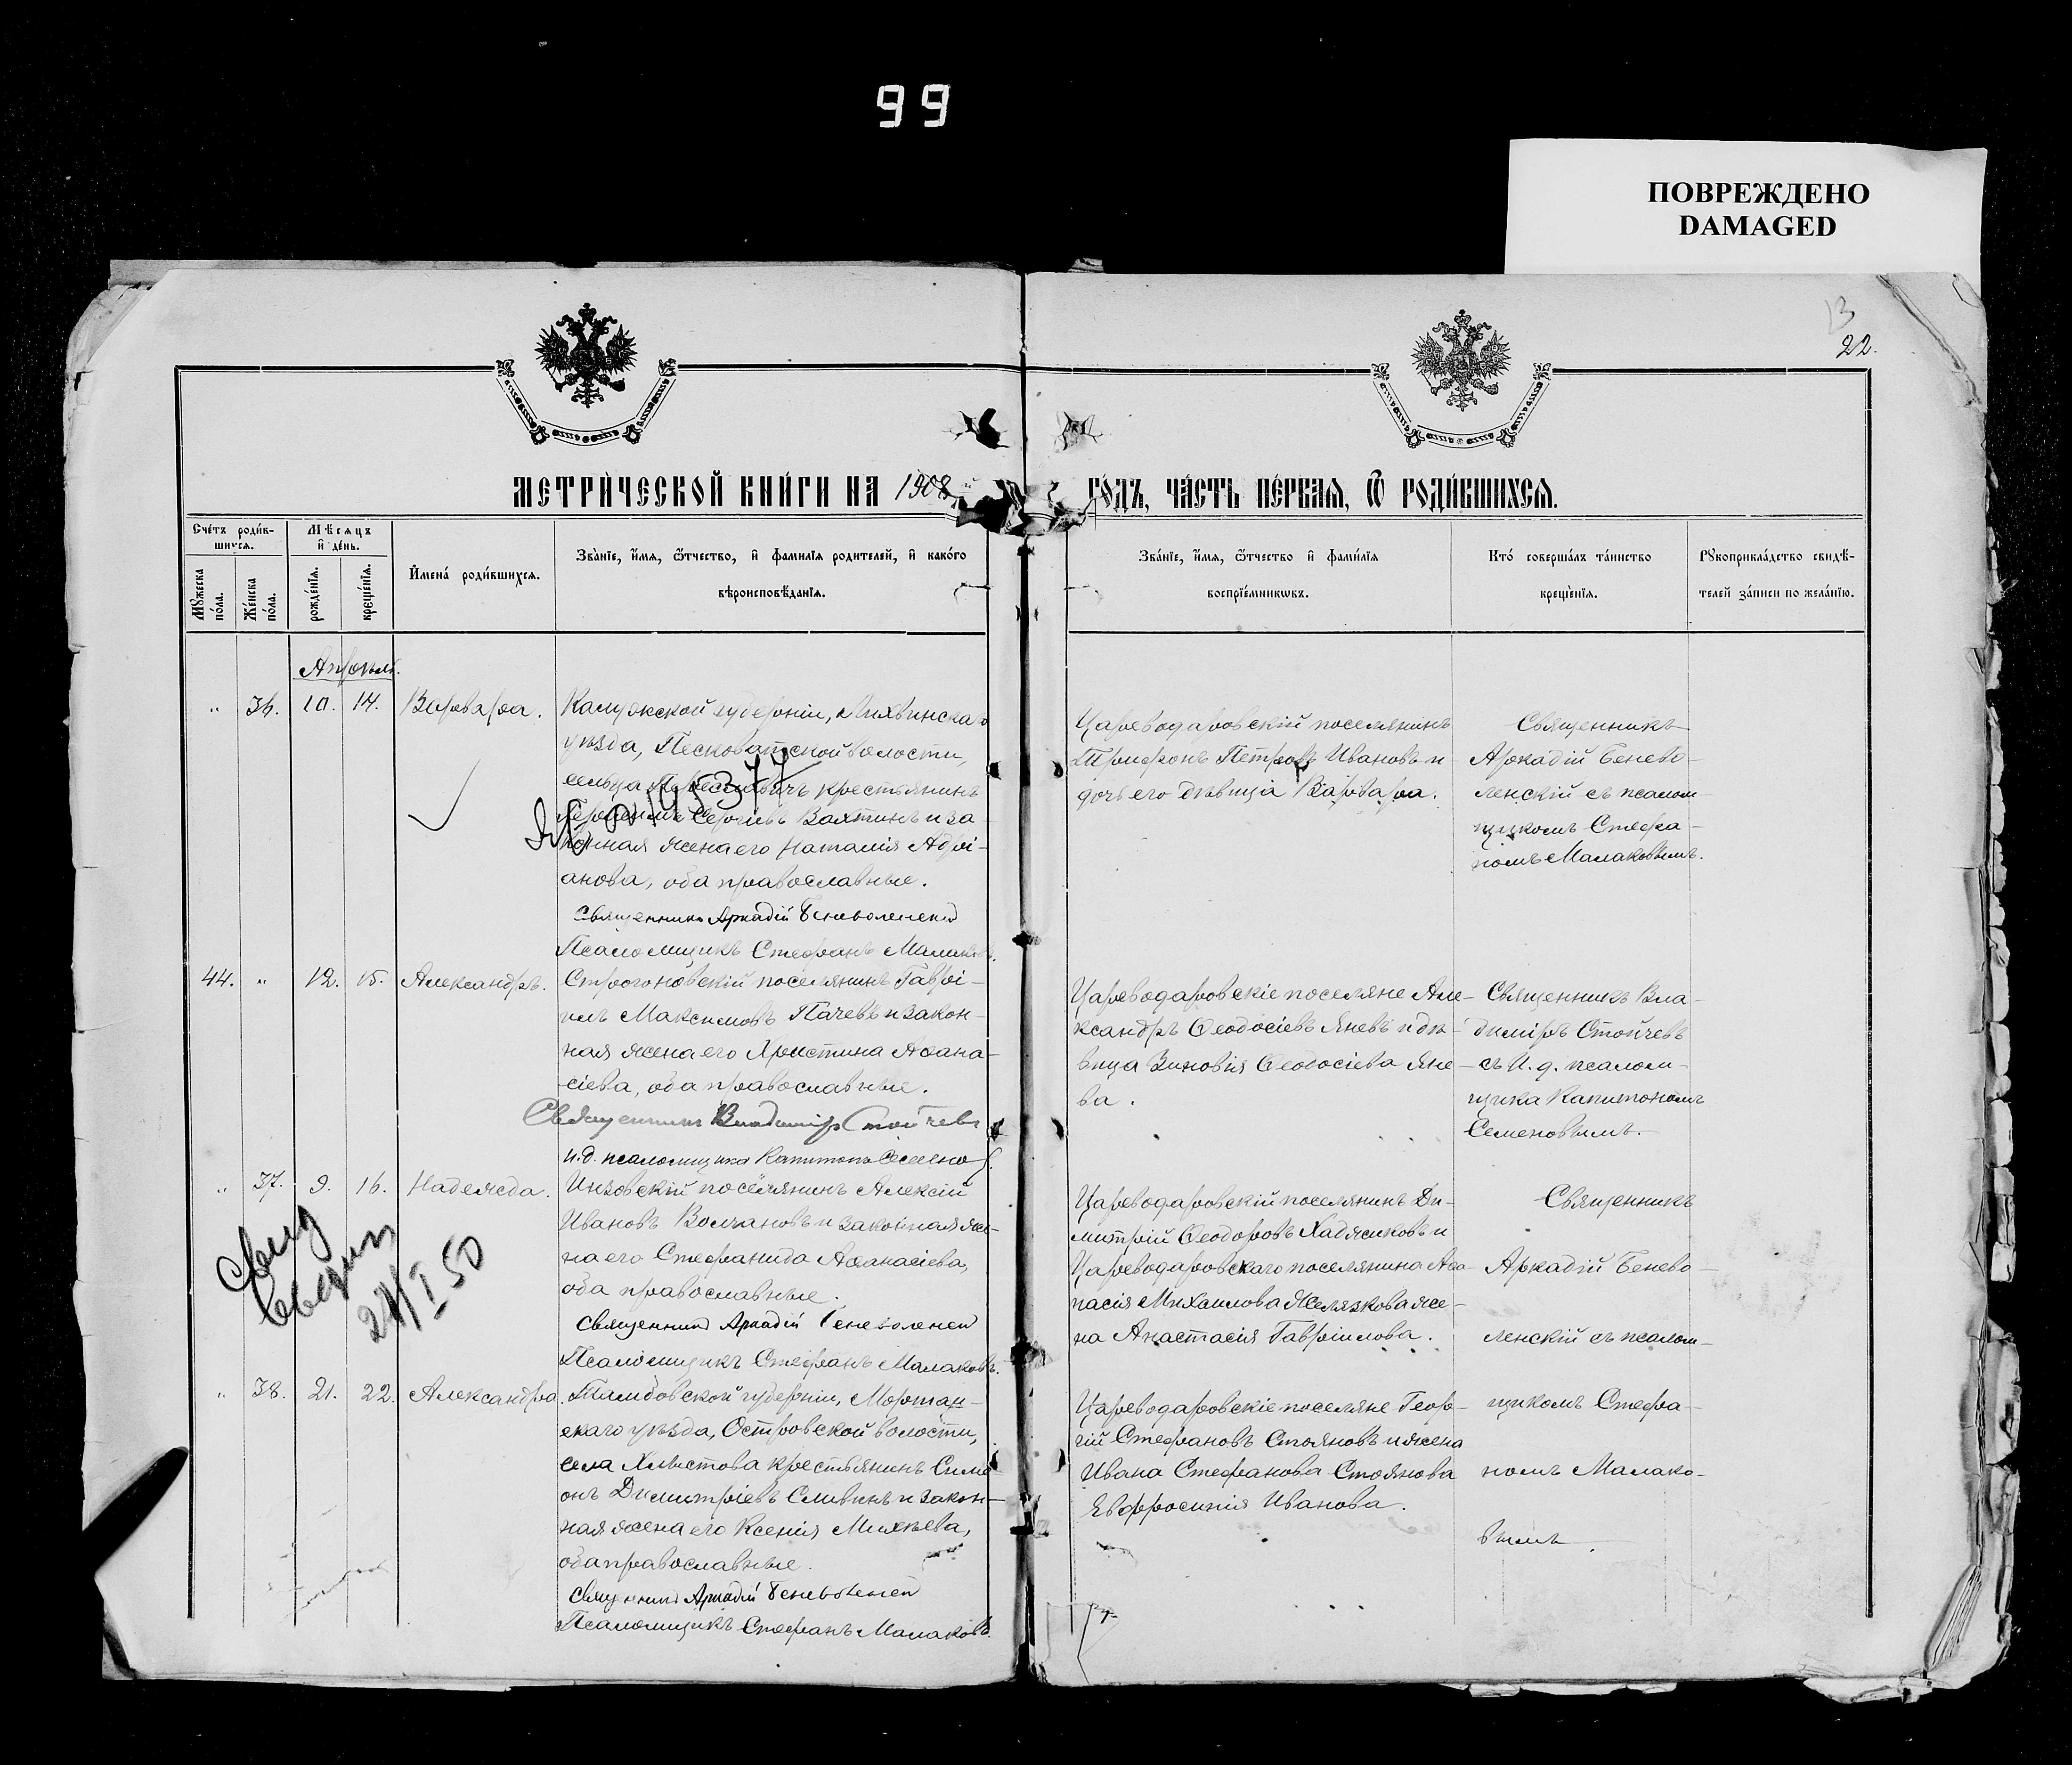 99
ПОВРЕЖДЕНО
DAMAGED
22.
МЕТРИ́ЧЕСКОЙ КНИ́ГИ НА 1908
ГО́ДЪ, ЧА́СТЬ ПЕ́РВАѦ, Ѿ РОДИ́ВШИХСѦ.
Сче́тъ роди́в-
шихсѧ.
Мꙋжеска по́ла.
Же́нска по́ла.
Мѣсѧцъ
и҆ де́нь.
рожде́нїѧ.
креще́нїѧ.
И҆мена́ роди́вшихсѧ.
Зва́нїе, и҆́мѧ, ѻ҆́тчество, и҆ фамилїѧ родителей, и҆ како́гѡ
вѣроисповѣ́данїѧ.
Зва́нїе, и҆́мѧ, ѻ҆́тчество и҆ фами́лїѧ
воспрїе́мникѡвъ.
Кто́ соверша́лъ та́инство
креще́нїѧ.
Рꙋкоприкла́дство свидѣ́-
телей за́писи по жела́нїю.
Апрѣль.
" 36. 10. 14. Варвара.
Калужской губерніи, Лихвинскаго
уѣзда, Песковатской волости,
сельца крестьянинъ
Сергіевъ Вахтинъ и за-
конная жена его Наталія Адрі-
анова, оба православные.
Священникъ Аркадій Беневоленскій
Псаломщикъ Стефанъ Малаковъ.
Цареводаровскій поселянинъ
Трифонъ Петровъ Ивановъ и
дочь его дѣвица Варвара.
Священникъ
Аркадій Бенево-
ленскій съ псалом-
щикомъ Стефа-
номъ Малаковымъ.
44. " 12. 15. Александръ.
Строгоновскій поселянинъ Гаврі-
илъ Максимовъ Пачевъ и закон-
ная жена его Христина Аѳана-
сіева, оба православные.
Священникъ Владиміръ Стойчевъ
и.д. псаломщика Капитонъ Семенов.
Цареводаровскіе поселяне Але-
ксандръ Ѳеодосіевъ Яневъ и дѣ-
вица Зиновія Ѳеодосіева Яне-
ва.
Священникъ Вла-
диміръ Стойчевъ
съ И. д. псалом-
щика Капитономъ
Семеновымъ.
" 37. 9. 16. Надежда.
Инзовскій поселянинъ Алексій
Ивановъ Волчановъ и законная же-
на его Стефанида Аѳанасіева,
оба православные.
Священникъ Аркадій Беневоленскій
Псаломщикъ Стефанъ Малаковъ.
24/I 50
Цареводаровскій поселянинъ Ди-
митрій Ѳеодоровъ Хаджиковъ и
Цареводаровскаго поселянина Аѳа-
насія Михаилова Желязкова же-
на Анастасія Гавріилова.
Священникъ
Аркадій Бенево-
ленскій съ псалом-
щикомъ Стефа-
номъ Малако-
вымъ.
" 38. 21. 22. Александра.
Тамбовской губерніи, Моршан-
скаго уѣзда, Островской волости,
села Хлыстова крестьянинъ Симе-
онъ Димитріевъ Сливинъ и закон-
ная жена его Ксенія Михѣева,
оба православные.
Священникъ Аркадій Беневоленскій
Псаломщикъ Стефанъ Малаковъ.
Цареводаровскіе поселяне Геор-
гій Стефановъ Стояновъ и жена
Ивана Стефанова Стоянова
Евфросинія Иванова.